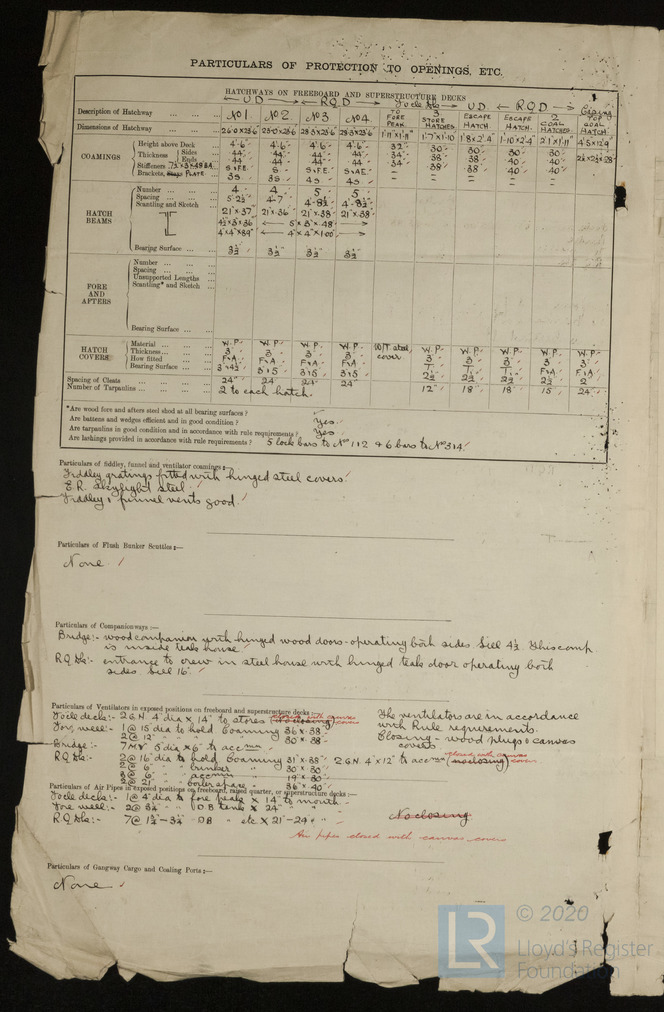 PARTICULARS OF PROTECTION TO OPENINGS, ETC.
HATCHWAYS ON FREEBOARD AND SUPERSTRUCTURE DECKS
← UD → ← RQD → Focle dk UD ← RQD →
Description of Hatchway No 1 No 2 No 3 No 4 TO FORE PEAK 3 STORE HATCHES ESCAPE HATCH ESCAPE HATCH 2 COAL HATCHES COAL HATCH
Dimensions of Hatchway 26·0 x 23·6 1'·11" x 1'·11" 1'·7 x 1'·10 1'·8 x 2'·4 1'·10 x 2'·4 2'·1 x 1'·11 4'·5 x 12'·9
COAMINGS
Height above Deck 4'·6" 4'·6" 4'·6" 4'·6" 32" 30" 30" 30" 30"
Thickness Sides ·44 ·44 ·44 ·44 ·34 ·38 ·38 ·40 ·40
Ends ·44 ·44 ·44 ·44 ·34 ·38 ·38 ·40 ·40
Stiffeners S & F.E. S S & F.E. S & A.E. – – – – –
Brackets, PLATE 3S 3S 4S 4S – – – – –
HATCH BEAMS
Number 4 4 5 5
Spacing 5'·2½ 4·7 4'·8½ 4'·8½
Scantling and Sketch 21" x ·37" 21" x ·36 21" x ·38 21" x ·38
4½ x 3 x ·36 ← 5 x 3 x ·48 →
4 x 4 x ·89" ← 4" x 4" x ·100 →
Bearing Surface 3½ 3½ 3½ 3½
FORE AND AFTERS
Number
Spacing
Unsupported Lengths
Scantling* and Sketch
Bearing Surface
HATCH COVERS
Material W.P. W.P. W.P. W.P. W/T steel cover W.P. W.P. W.P. W.P. W.P.
Thickness 3" 3 3" 3" 3" 3" 3" 3" 3"
How fitted F&A F&A F&A F&A T T T F&A F&A
Bearing Surface 3 & 4½ 3 & 5 3 & 5 3 & 5 2½ 2½ 2½ 2½ 2
Spacing of Cleats 24" 24 24 24" 12" 18" 18" 15 24
Number of Tarpaulins 2 to each hatch.
*Are wood fore and afters steel shod at all bearing surfaces? –
Are battens and wedges efficient and in good condition? Yes
Are tarpaulins in good condition and in accordance with rule requirements? Yes
Are lashings provided in accordance with rule requirements? 5 lock bars to Nos 1 & 2 & 6 bars to Nos 3 & 4.
Particulars of fiddley, funnel and ventilator coamings:—
Fiddley gratings fitted with hinged steel covers.
E.R. Skylight steel
Fiddley & funnel vents good.
Particulars of Flush Bunker Scuttles:—
None.
Particulars of Companionways:—
Bridge:- wood companion with hinged wood doors - operating both sides. Sill 4½. This comp. is inside teak house.
R.Q. dk:- entrance to crew in steel house with hinged teak door operating both sides Sill 16"
Particulars of Ventilators in exposed positions on freeboard and superstructure decks:—
Focle decks:- 2 G.N. 4" dia x 14" to stores (No closing) closed with canvas covers
Fore well:- 1 @ 15 dia to hold Coaming 36 x ·38
2 @ 12" " " 30 x ·38
Bridge:- 7 MV 5 dia x 6" to accmn
R.Q. dk:- 2 @ 16" dia to hold Coaming 31" x ·38 2 G.N. 4 x 12" to accmn (no closing) closed with canvas covers
2 @ 6" " bunker " 30 x 30
3 @ 6" " accmn " 19 x 30
2 @ 21" " boiler space " 36 x ·40
The ventilators are in accordance
with Rule requirements.
Closing - wood plugs & canvas
covers
Particulars of Air Pipes in exposed positions on freeboard, raised quarter, or superstructure decks:—
Focle decks:- 1 @ 4" dia to fore peak x 14" to mouth
Fore well:- 2 @ 3½" " DB tank x 24" "
R.Q. dk:- 7 @ 1½"-3½" DB " etc x 21"-24" " No closing
Air pipes closed with canvas covers
Particulars of Gangway Cargo and Coaling Ports:—
None
LR
© 2020
Lloyd's Register
Foundation